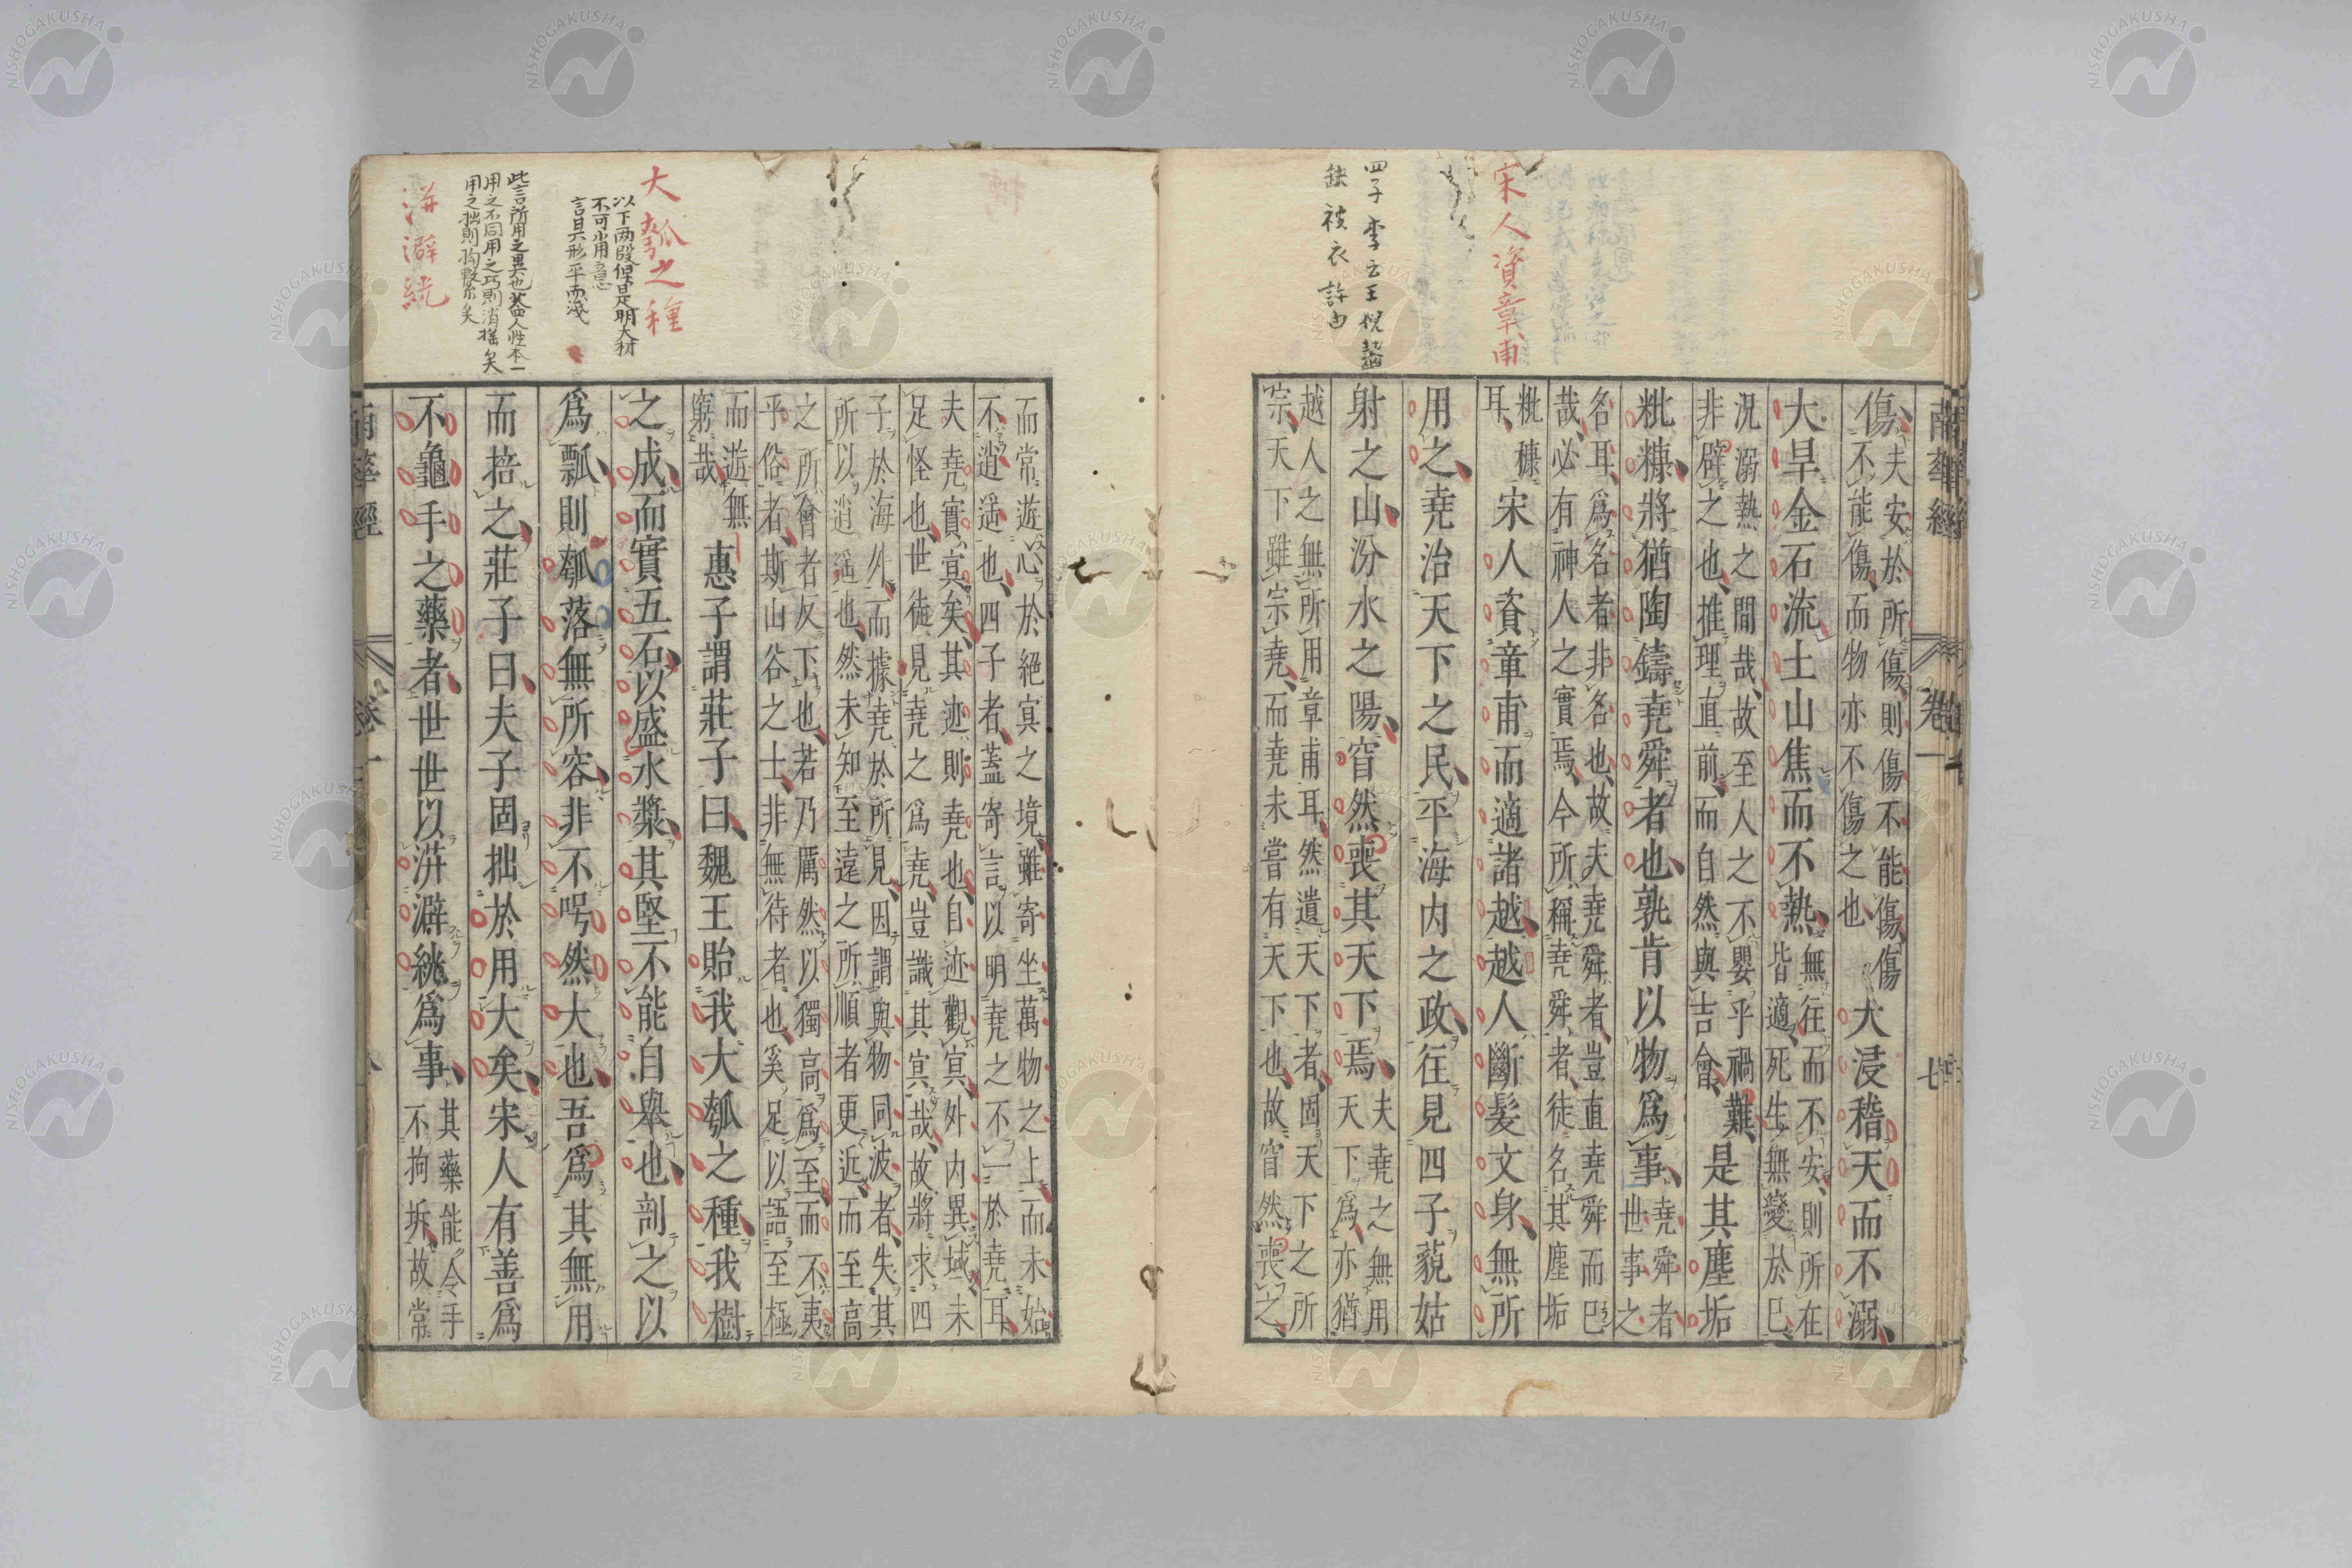 宋人資章甫
四子李云王倪齧
缺被衣許由
南華經 卷一 七
傷
夫安於所傷則傷不能傷傷
不能傷而物亦不傷之也
大浸稽天而不溺
大旱金石流土山焦而不熱
無往而不安則所在
皆適死生無變於巳
況溺熱之間哉故至人之不嬰乎禍難
非避之也推理直前而自然與吉會
是其塵垢
粃糠將猶陶鑄堯舜者也孰肯以物爲事
堯舜者
世事之
名耳爲名者非名也故夫堯舜者豈直堯舜而巳
哉必有神人之實焉今所稱堯舜者徒名其塵垢
粃糠
耳
宋人資章甫而適諸越越人斷髮文身無所
用之堯治天下之民平海内之政往見四子藐姑
射之山汾水之陽窅然喪其天下焉
夫堯之無用
天下爲亦猶
越人之無所用章甫耳然遺天下者固天下之所
宗天下雖宗堯而堯未嘗有天下也故窅然喪之
而常遊心於絕冥之境雖寄坐萬物之上而未始
不逍遥也四子者蓋寄言以明堯之不一於堯耳
夫堯實冥矣其迹則堯也自迹觀冥外内異域未
足怪也世徒見堯之爲堯豈識其冥哉故將求四
子於海外而據堯於所見因謂與物同波者失其
所以逍遥也然未知至遠之所順者更近而至高
之所會者反下也若乃厲然以獨高爲至而不夷
乎俗者斯山谷之士非無待者也奚足以語至極
而遊無
窮哉
惠子謂莊子曰魏王貽我大瓠之種我樹
之成而實五石以盛水漿其堅不能自舉也剖之以
爲瓢則瓠落無所容非不呺然大也吾爲其無用
而掊之莊子曰夫子固拙於用大矣宋人有善爲
不龜手之藥者世世以洴澼絖爲事
其藥能令手
不拘坼故常
大瓠之種
以下両段但是明大材
不可小用意
言是形平而淺
此言所用之異也蓋人性本一
用之不同用之巧則消揺矣
用之拙則拘繫矣
洴澼絖
南華經 卷一